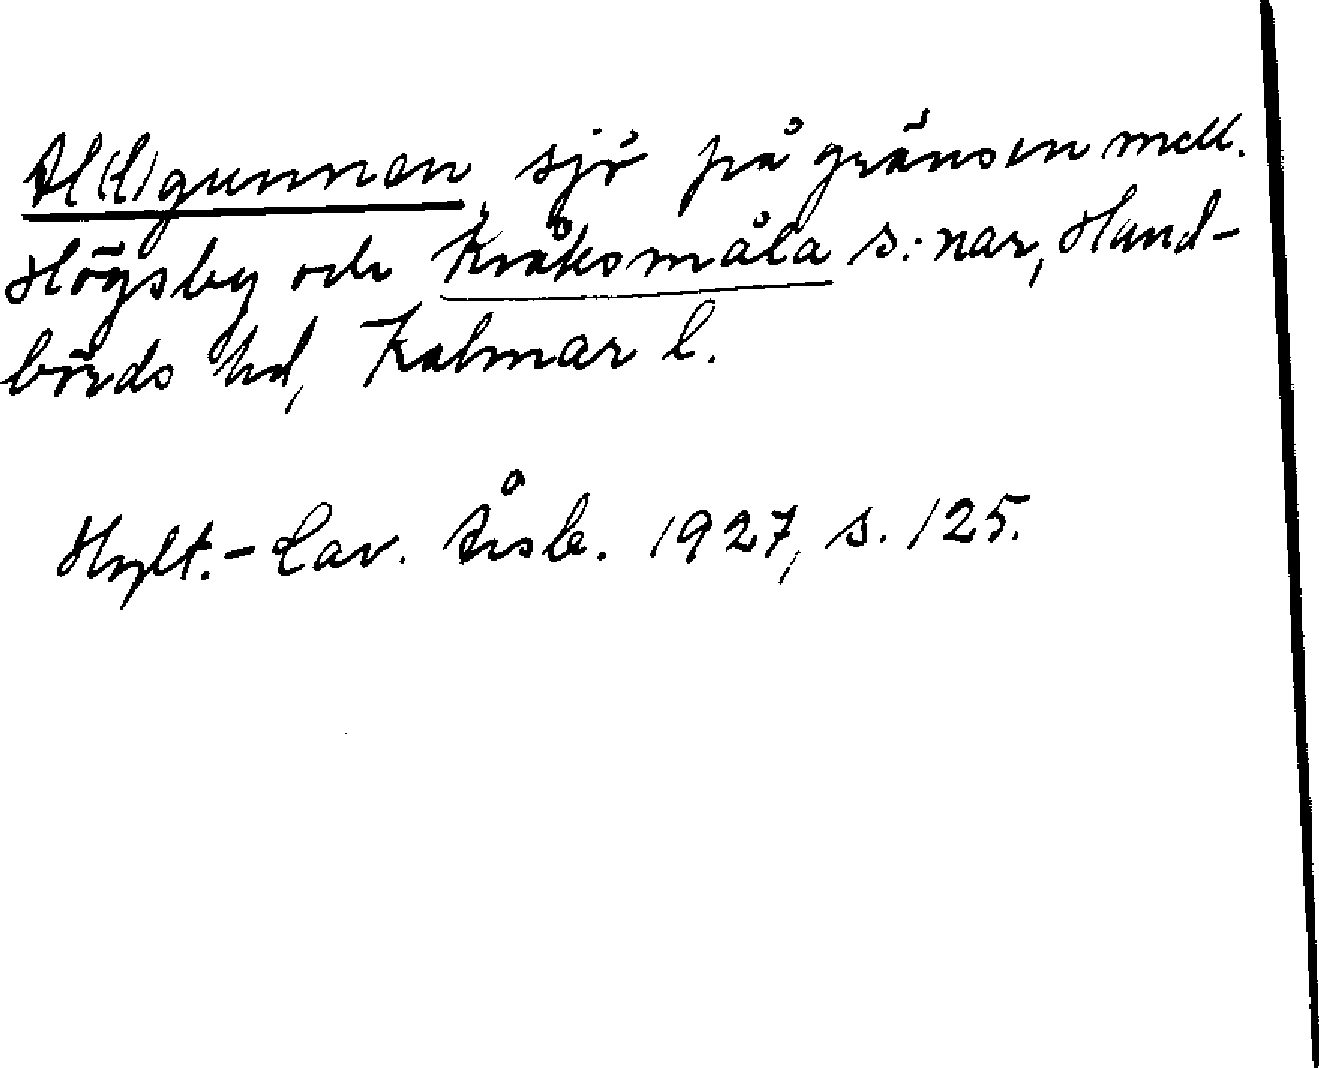 Al(l)gunnen, sjö på gränsen mell.
Högsby och Kråksmåla s:nar, Hand-
börds hd, Kalmar l.
Hylt.-Cav. Årsb. 1927, s. 125.